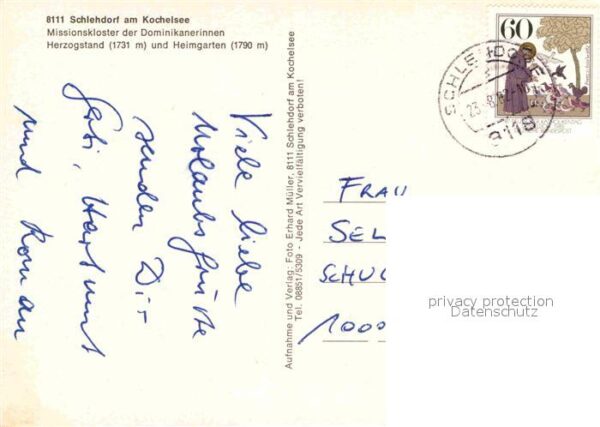 8111 Schlehdorf am Kochelsee
Missionskloster der Dominikanerinnen
Herzogstand (1731 m) und Heimgarten (1790 m)
60
SCHLEHDORF
8111
Viele liebe
Urlaubsgrüße
senden Dir
Gabi, Hartmut
und Roman
Aufnahme und Verlag: Foto Erhard Müller, 8111 Schlehdorf am Kochelsee
Tel. 08851/5309 - Jede Art Vervielfältigung verboten!
FRAU
SEL
SCHUL
1000
privacy protection
Datenschutz